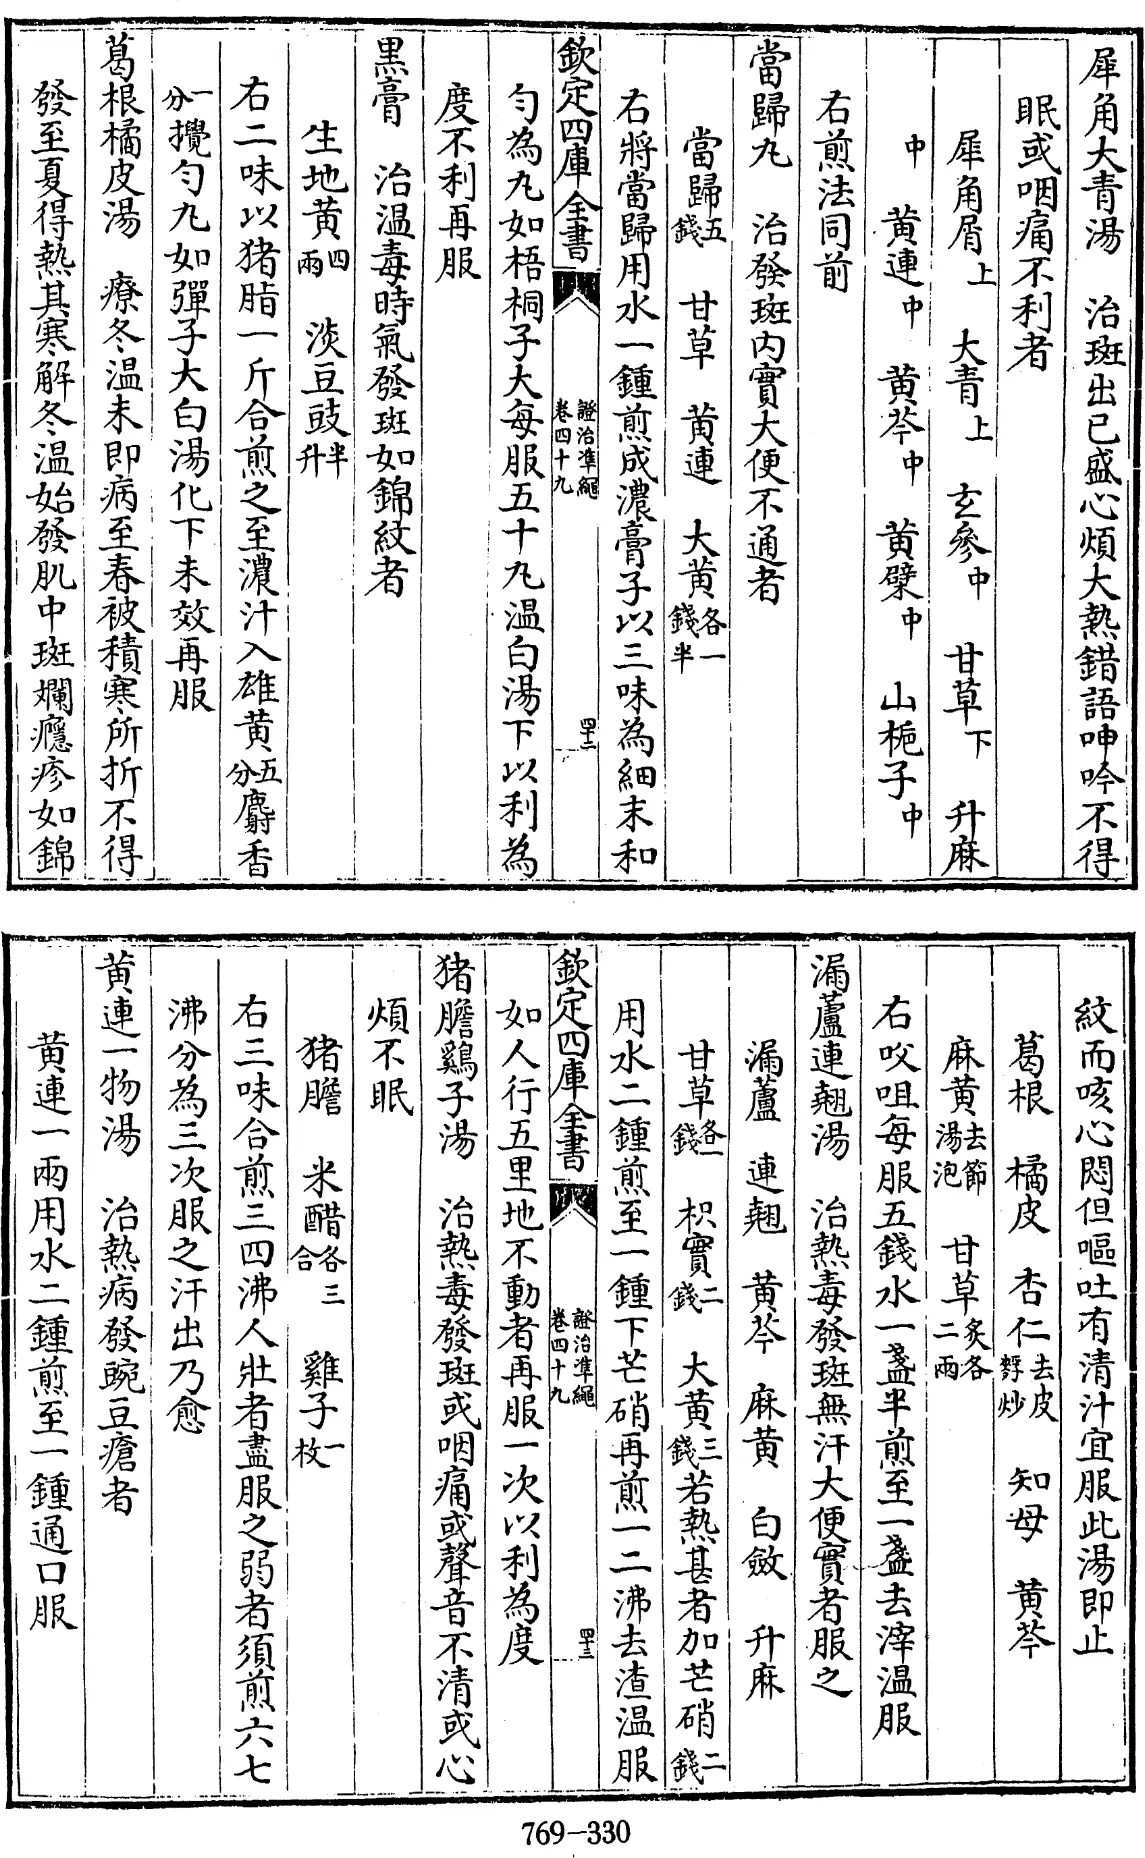 犀角大青湯　治斑出已盛心煩大熱錯語呻吟不得
眠或咽痛不利者
犀角屑上　大青上　玄參中　甘草下　升麻
中　黄連中　黄芩中　黄檗中　山梔子中
右煎法同前
當歸丸　治發斑内實大便不通者
當歸五錢　甘草　黄連　大黄各一錢半
右將當歸用水一鍾煎成濃膏子以三味為細末和
欽定四庫全書　證治準繩卷四十九　四十二
勻為丸如梧桐子大每服五十丸温白湯下以利為
度不利再服
黒膏　治温毒時氣發斑如錦紋者
生地黄四兩　淡豆豉半升
右二味以猪脂一斤合煎之至濃汁入雄黄五分麝香
一分攪勻丸如彈子大白湯化下未效再服
葛根橘皮湯　療冬温未即病至春被積寒所折不得
發至夏得熱其寒解冬温始發肌中斑爛癮疹如錦
紋而咳心悶但嘔吐有清汁宜服此湯即止
葛根　橘皮　杏仁去皮麩炒　知母　黄芩
麻黄去節湯泡　甘草炙各二兩
右㕮咀每服五錢水一盞半煎至一盞去滓温服
漏蘆連翹湯　治熱毒發斑無汗大便實者服之
漏蘆　連翹　黄芩　麻黄　白斂　升麻
甘草各一錢　枳實二錢　大黄三錢若熱甚者加芒硝二錢
用水二鍾煎至一鍾下芒硝再煎一二沸去渣温服
欽定四庫全書　證治準繩卷四十九　四十三
如人行五里地不動者再服一次以利為度
猪膽鷄子湯　治熱毒發斑或咽痛或聲音不清或心
煩不眠
猪膽　米醋各三合　雞子一枚
右三味合煎三四沸人壯者盡服之弱者須煎六七
沸分為三次服之汗出乃愈
黄連一物湯　治熱病發豌豆瘡者
黄連一兩用水二鍾煎至一鍾通口服
769-330